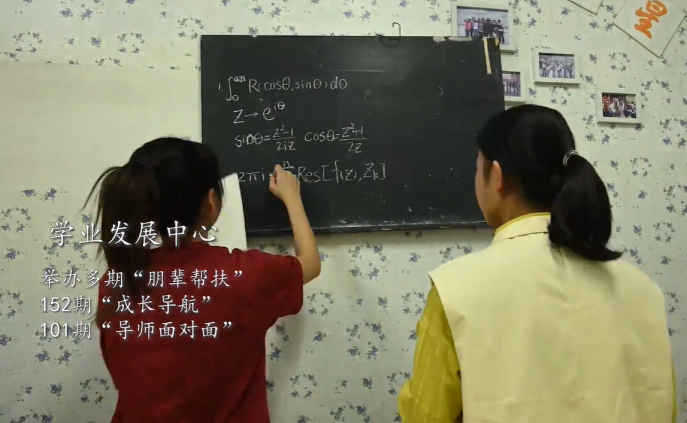 1. ∫₀²π R(cosθ,sinθ)dθ
Z→e^iθ
sinθ=z²-1/2iz cosθ=z²+1/2z
2πi Res[f(z),Zk]
学业发展中心
举办多期“朋辈帮扶”
152期“成长导航”
101期“导师面对面”